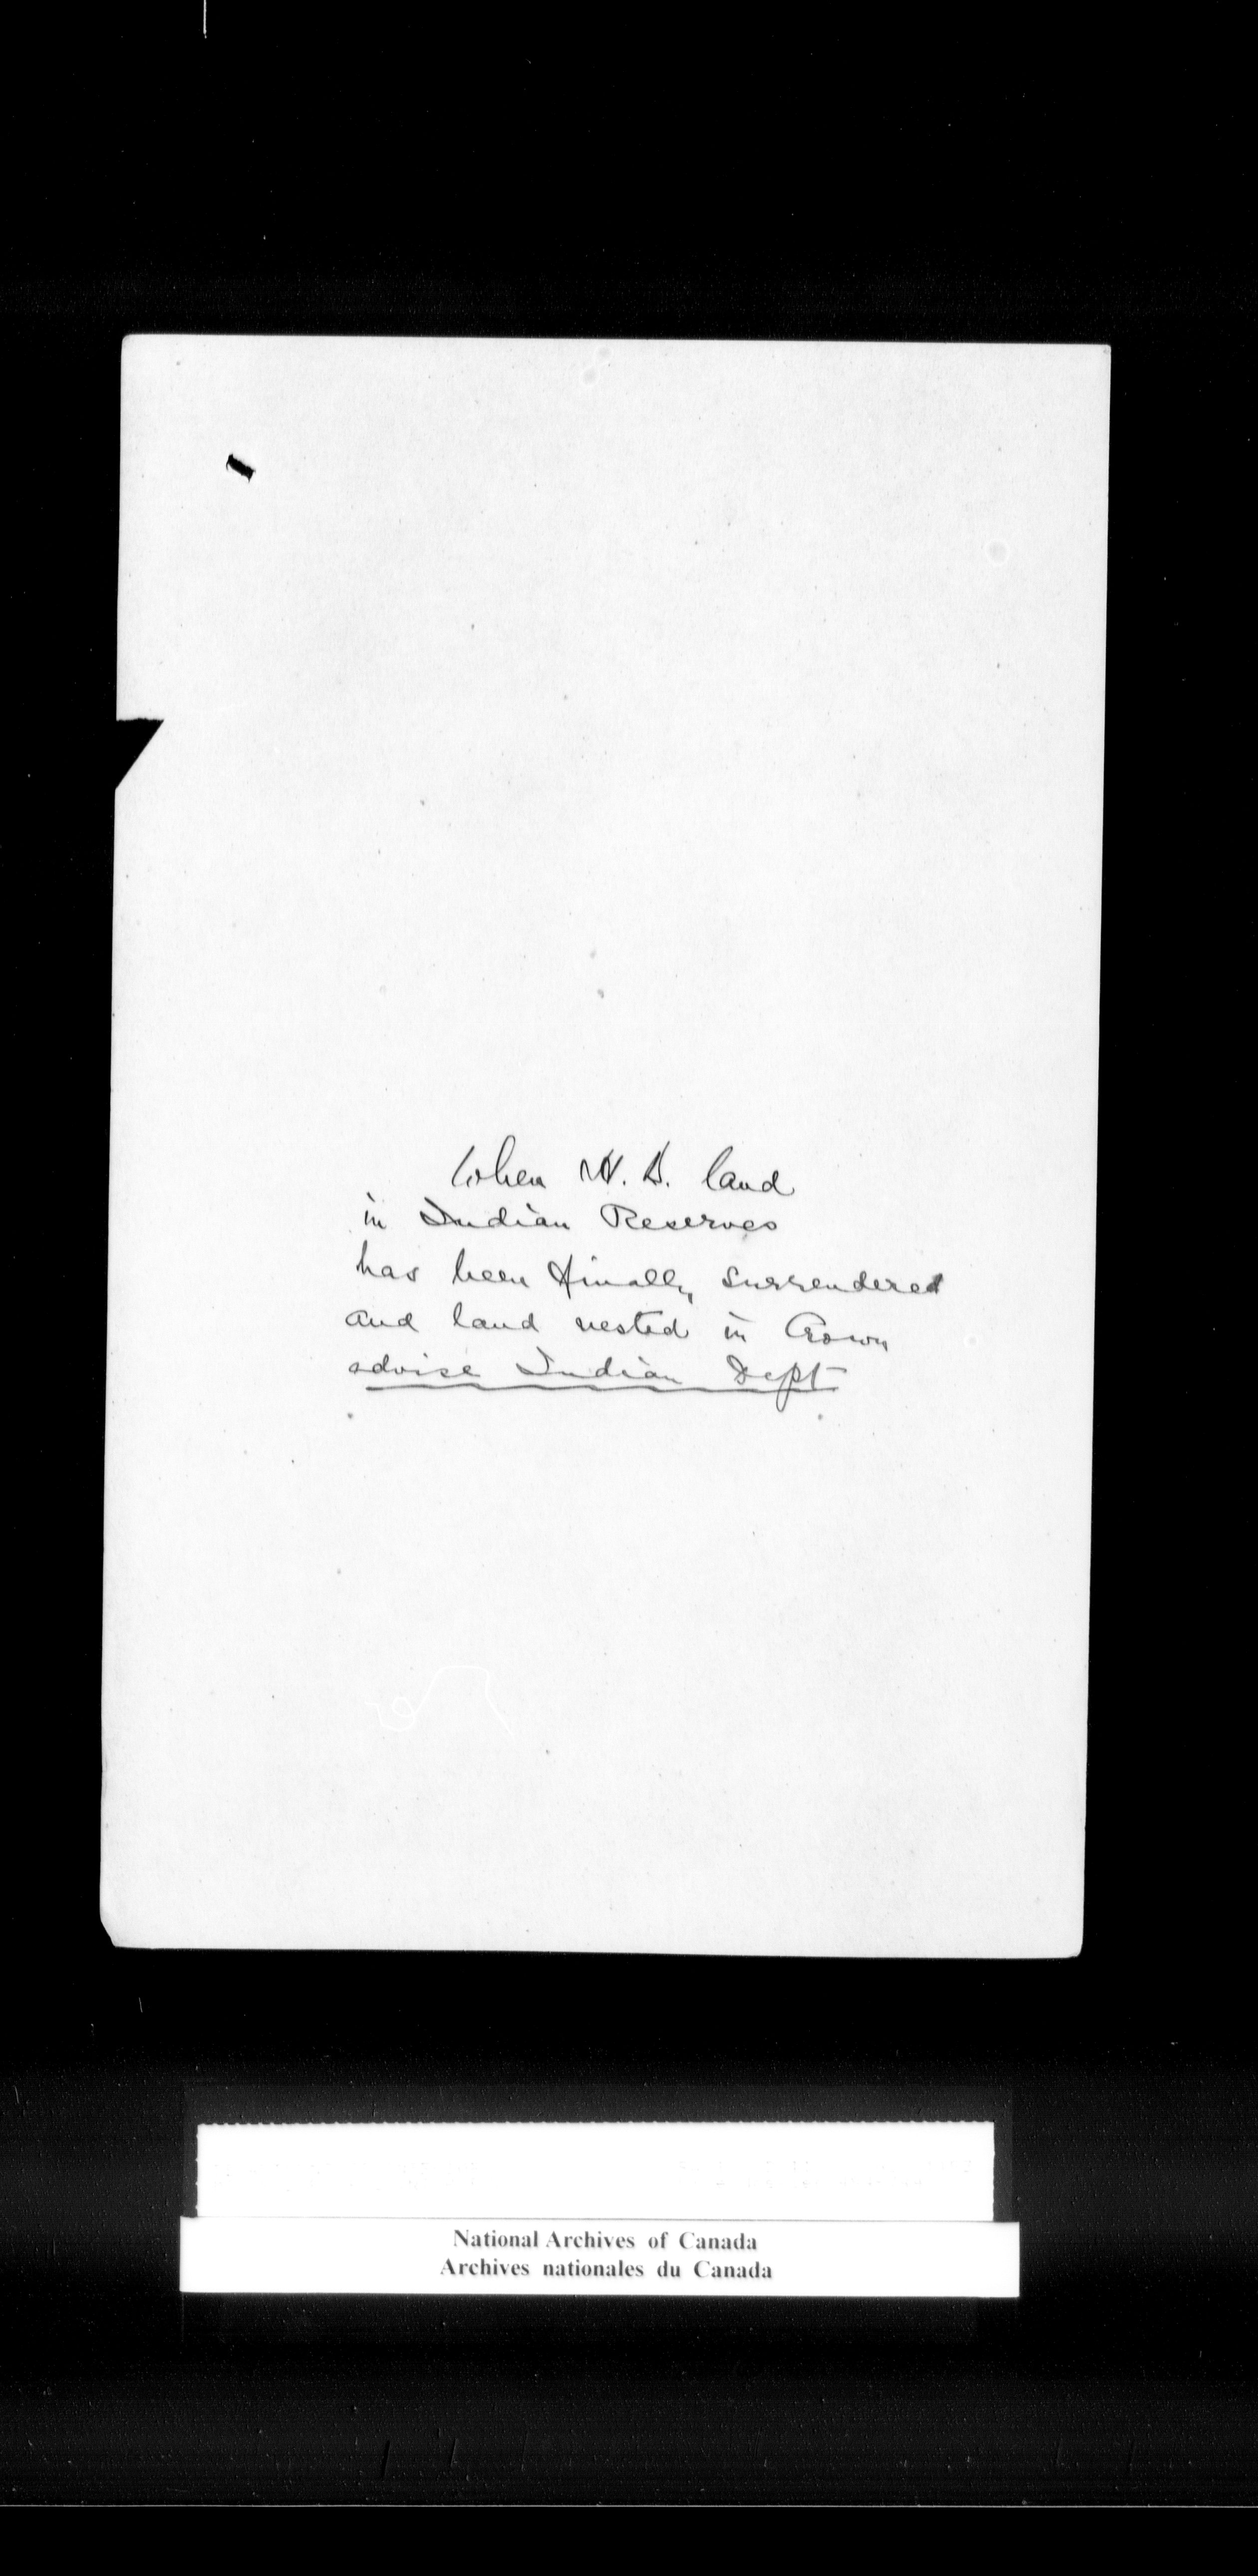 When H. B. land
in Indian Reserves
has been finally surrendered
and land vested in Crown
advise Indian Dept
National Archives of Canada
Archives nationales du Canada